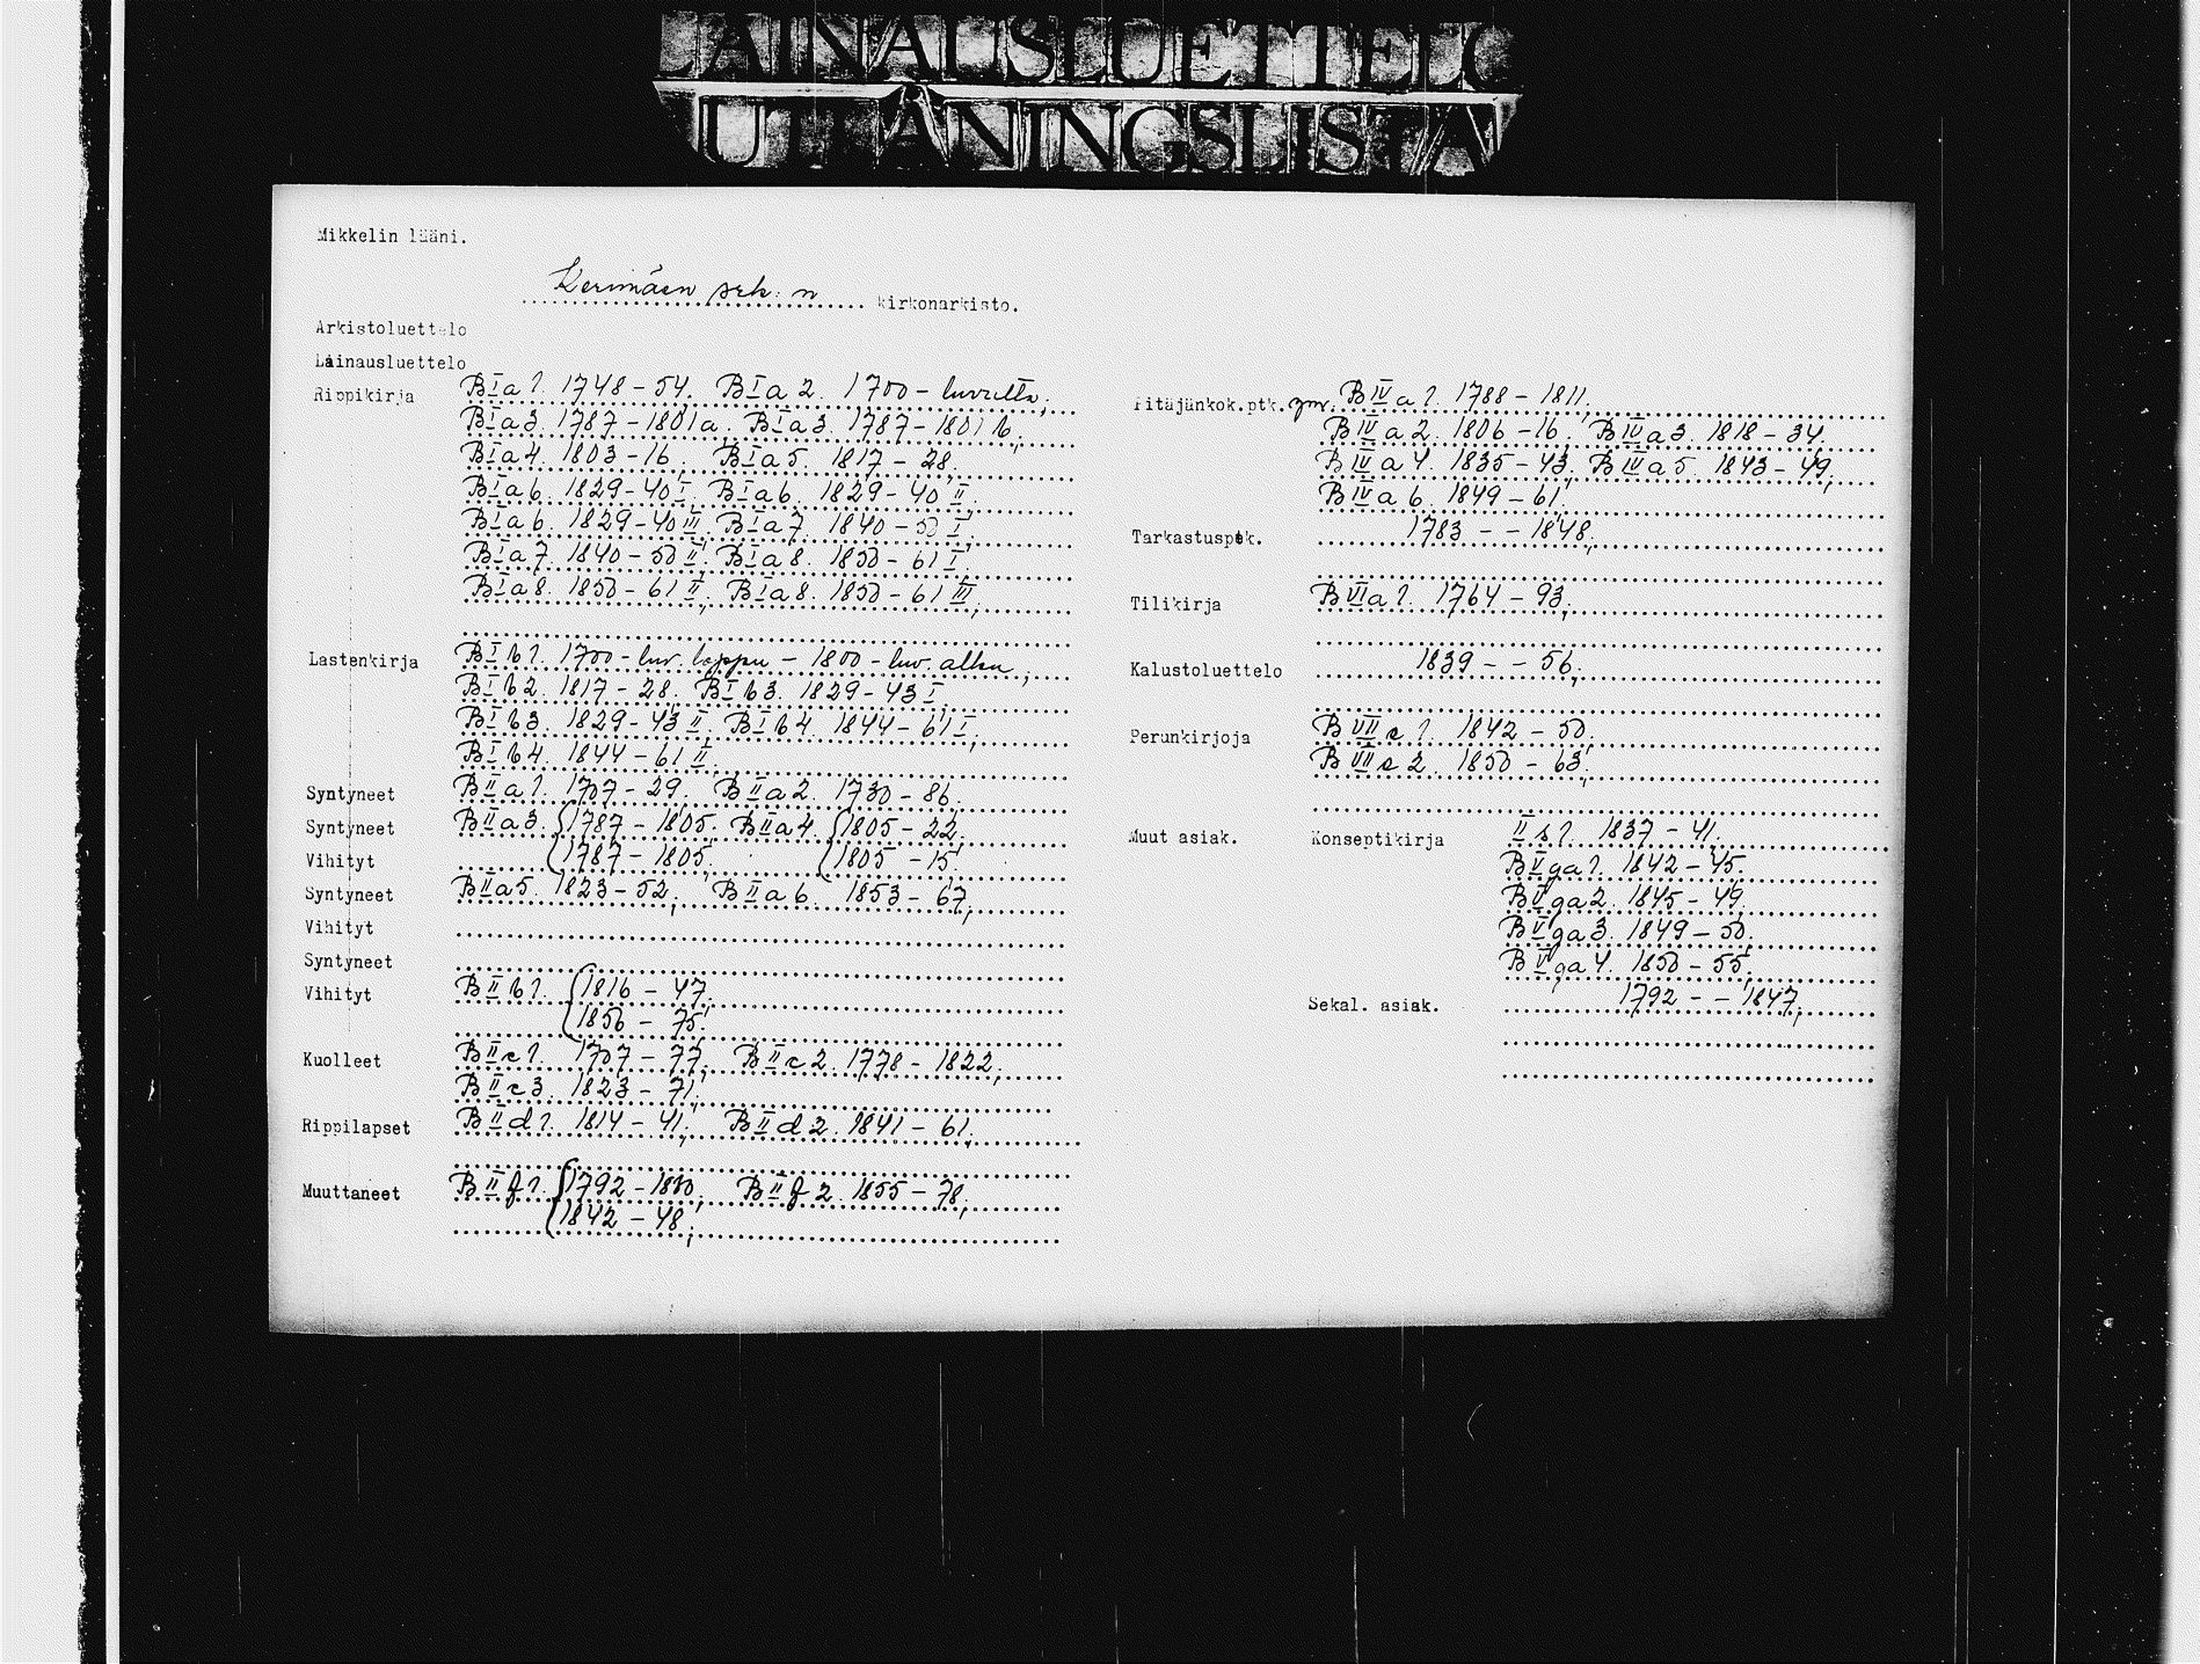 LAINAUSLUETTELO
UTLÅNINGSLISTA
Mikkelin lääni.
Kerimäen srk:n kirkonarkisto.
Arkistoluettelo
Lainausluettelo
Rippikirja B I a 1. 1748-54. B I a 2. 1700-luvulta;
B I a 3. 1787-1801 a. B I a 3. 1787-1801 b;
B I a 4. 1803-16; B I a 5. 1817-28;
B I a 6. 1829-40 I; B I a 6. 1829-40 II;
B I a 6. 1829-40 III; B I a 7. 1840-50 I;
B I a 7. 1840-50 II; B I a 8. 1850-61 I;
B I a 8. 1850-61 II; B I a 8. 1850-61 III;
Lastenkirja B I b 1. 1700-luv. loppu - 1800-luv. alku;
B I b 2. 1817-28; B I b 3. 1829-43 I;
B I b 3. 1829-43 II; B I b 4. 1844-61 I;
B I b 4. 1844-61 II;
Syntyneet B II a 1. 1707-29. B II a 2. 1730-86;
Syntyneet B II a 3. {1787-1805. B II a 4. {1805-22;
Vihityt {1787-1805; {1805-15;
Syntyneet B II a 5. 1823-52; B II a 6. 1853-67;
Vihityt
Syntyneet
Vihityt B II b 1. {1816-47;
{1856-75;
Kuolleet B II c 1. 1707-77; B II c 2. 1778-1822;
B II c 3. 1823-71;
Rippilapset B II d 1. 1814-41; B II d 2. 1841-61;
Muuttaneet B II f 1. {1792-1830; B II f 2. 1855-78;
{1842-48;
Pitäjänkok.ptk. ym. B IV a 1. 1788-1811;
B IV a 2. 1806-16; B IV a 3. 1818-34;
B IV a 4. 1835-43; B IV a 5. 1843-49;
B IV a 6. 1849-61;
Tarkastuspök. 1783--1848;
Tilikirja B VI a 1. 1764-93;
Kalustoluettelo 1839--56;
Perunkirjoja B VII s 1. 1842-50;
B VII s 2. 1850-63;
Muut asiak. Konseptikirja II s 1. 1837-41.
B V ga 1. 1842-45.
B V ga 2. 1845-49.
B V ga 3. 1849-50.
B V ga 4. 1850-55;
Sekal. asiak. 1792--1847;